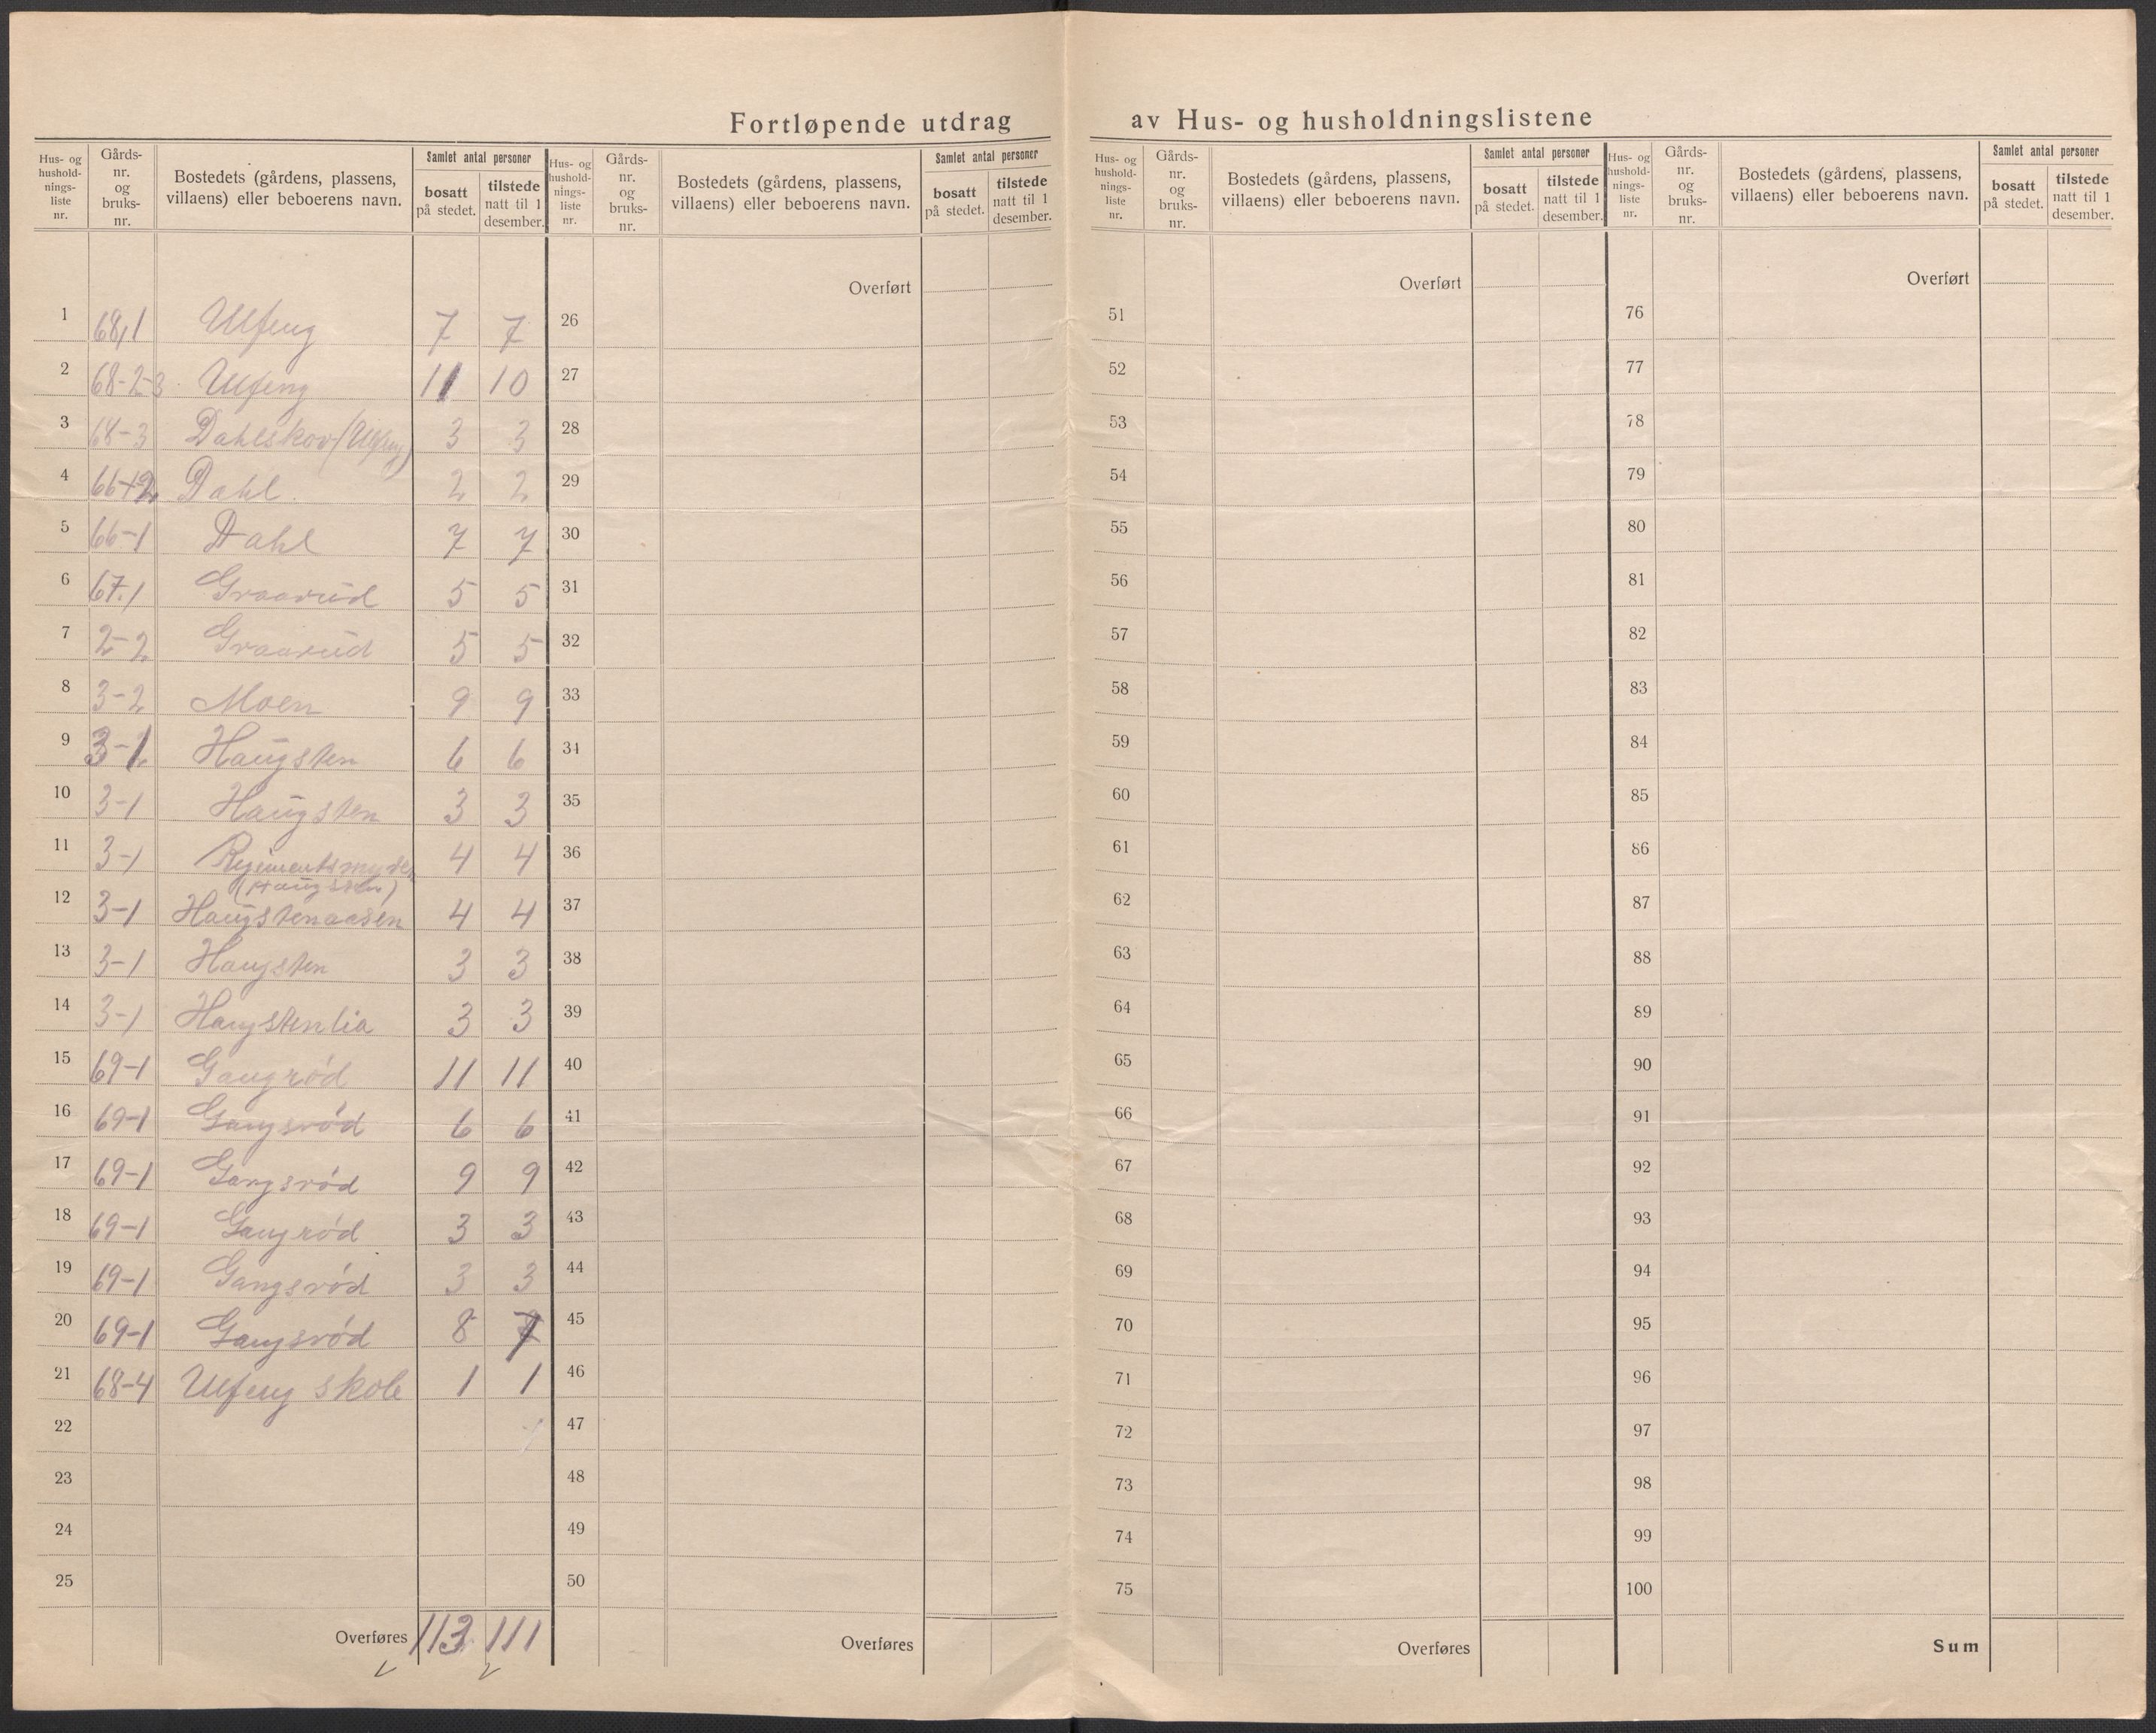 Fortløpende utdrag av Hus- og husholdningslistene
Hus- og hushold-nings-liste nr. | Gårds-nr. og bruks-nr. | Bostedets (gårdens, plassens, villaens) eller beboerens navn. | Samlet antal personer | bosatt på stedet. | tilstede natt til 1 desember.
1 68,1 Ulfeng 7 7
2 68-2-3 Ulfeng 11 10
3 68-3 Dahlskov (Ulfeng) 3 3
4 66-2 Dahl 2 2
5 66-1 Dahl 7 7
6 67.1 Graarud 5 5
7 2-2 Graarud 5 5
8 3-2 Moen 9 9
9 3-1 Haugsten 6 6
10 3-1 Haugsten 3 3
11 3-1 Regimentsmyren 4 4
(Haugsten)
12 3-1 Haugstenaasen 4 4
13 3-1 Haugsten 3 3
14 3-1 Haugstenlia 3 3
15 69-1 Gangrød 11 11
16 69-1 Gangsrød 6 6
17 69-1 Gangsrød 9 9
18 69-1 Gangrød 3 3
19 69-1 Gangsrød 3 3
20 69-1 Gangsrød 8 7
21 68-4 Ulfeng skole 1 1
22
23
24
25
Overføres 113 111
Hus- og hushold-nings-liste nr. | Gårds-nr. og bruks-nr. | Bostedets (gårdens, plassens, villaens) eller beboerens navn. | Samlet antal personer | bosatt på stedet. | tilstede natt til 1 desember.
Overført
26
27
28
29
30
31
32
33
34
35
36
37
38
39
40
41
42
43
44
45
46
47
48
49
50
Overføres
Hus- og hushold-nings-liste nr. | Gårds-nr. og bruks-nr. | Bostedets (gårdens, plassens, villaens) eller beboerens navn. | Samlet antal personer | bosatt på stedet. | tilstede natt til 1 desember.
Overført
51
52
53
54
55
56
57
58
59
60
61
62
63
64
65
66
67
68
69
70
71
72
73
74
75
Overføres
Hus- og hushold-nings-liste nr. | Gårds-nr. og bruks-nr. | Bostedets (gårdens, plassens, villaens) eller beboerens navn. | Samlet antal personer | bosatt på stedet. | tilstede natt til 1 desember.
Overført
76
77
78
79
80
81
82
83
84
85
86
87
88
89
90
91
92
93
94
95
96
97
98
99
100
Sum